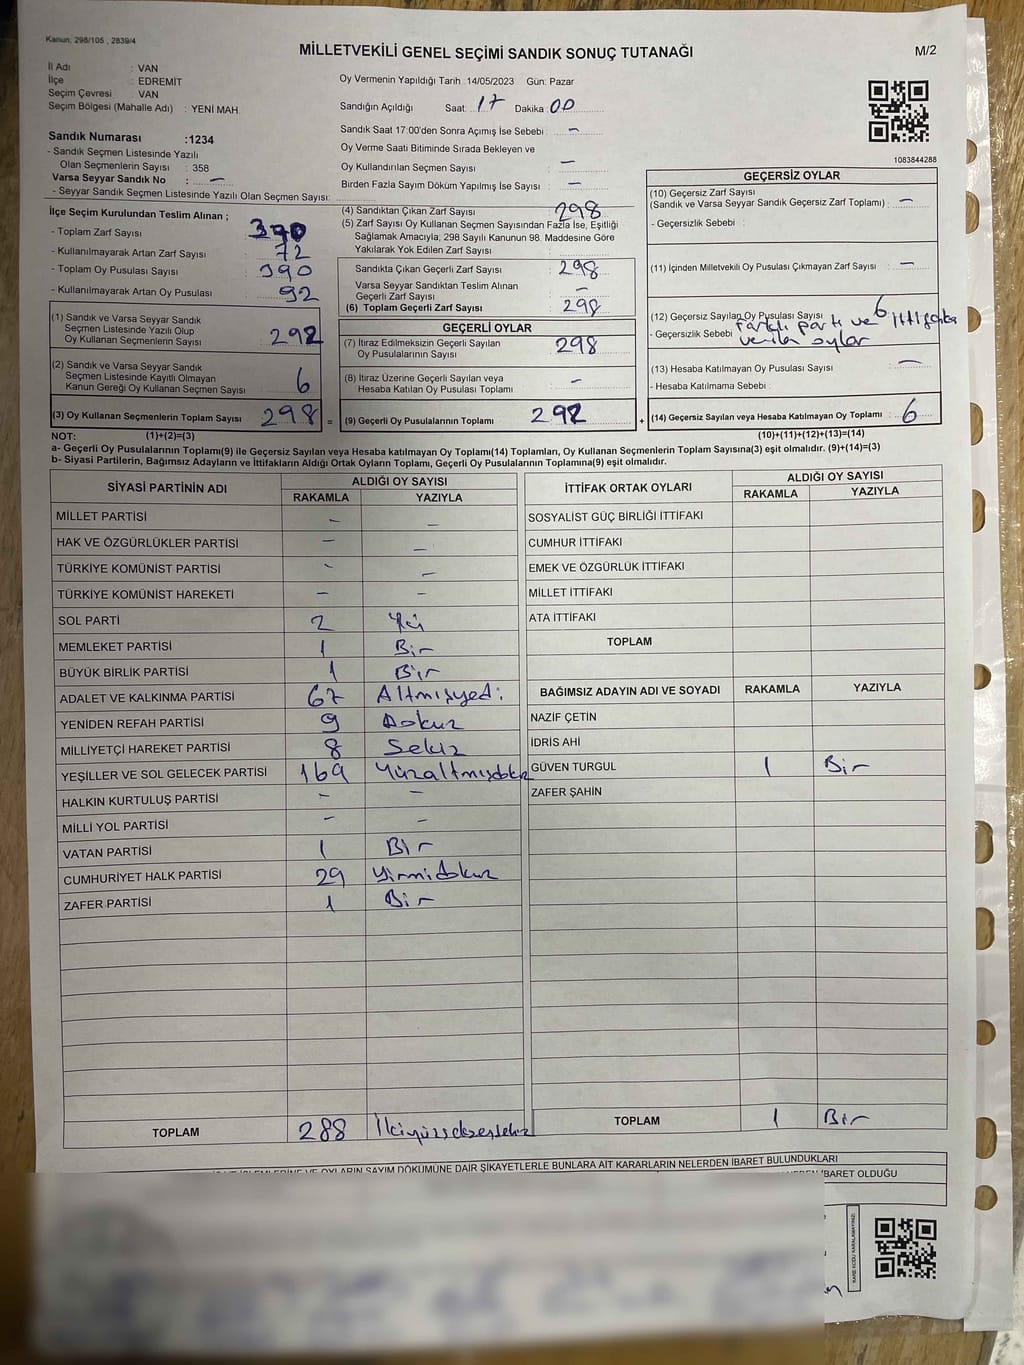 Kanun; 298/105 , 2839/4
MİLLETVEKİLİ GENEL SEÇİMİ SANDIK SONUÇ TUTANAĞI
M/2
İl Adı : VAN
İlçe : EDREMİT
Seçim Çevresi : VAN
Seçim Bölgesi (Mahalle Adı) : YENİ MAH.
Oy Vermenin Yapıldığı Tarih :14/05/2023 Gün: Pazar
Sandığın Açıldığı Saat 17 Dakika 00
Sandık Saat 17:00'den Sonra Açımış İse Sebebi : –
Oy Verme Saati Bitiminde Sırada Bekleyen ve
Oy Kullandırılan Seçmen Sayısı : –
Birden Fazla Sayım Döküm Yapılmış İse Sayısı : –
1083844288
Sandık Numarası :1234
- Sandık Seçmen Listesinde Yazılı
Olan Seçmenlerin Sayısı : 358
Varsa Seyyar Sandık No : –
- Seyyar Sandık Seçmen Listesinde Yazılı Olan Seçmen Sayısı:
İlçe Seçim Kurulundan Teslim Alınan ;
- Toplam Zarf Sayısı 370
- Kullanılmayarak Artan Zarf Sayısı 72
- Toplam Oy Pusulası Sayısı 390
- Kullanılmayarak Artan Oy Pusulası 92
(1) Sandık ve Varsa Seyyar Sandık
Seçmen Listesinde Yazılı Olup
Oy Kullanan Seçmenlerin Sayısı 292
(2) Sandık ve Varsa Seyyar Sandık
Seçmen Listesinde Kayıtlı Olmayan
Kanun Gereği Oy Kullanan Seçmen Sayısı 6
(3) Oy Kullanan Seçmenlerin Toplam Sayısı 298 =
(4) Sandıktan Çıkan Zarf Sayısı 298
(5) Zarf Sayısı Oy Kullanan Seçmen Sayısından Fazla İse, Eşitliği
Sağlamak Amacıyla, 298 Sayılı Kanunun 98. Maddesine Göre
Yakılarak Yok Edilen Zarf Sayısı :
Sandıkta Çıkan Geçerli Zarf Sayısı 298
Varsa Seyyar Sandıktan Teslim Alınan
Geçerli Zarf Sayısı –
(6) Toplam Geçerli Zarf Sayısı 298
GEÇERLİ OYLAR
(7) İtiraz Edilmeksizin Geçerli Sayılan
Oy Pusulalarının Sayısı 298
(8) İtiraz Üzerine Geçerli Sayılan veya
Hesaba Katılan Oy Pusulası Toplamı –
(9) Geçerli Oy Pusulalarının Toplamı 292 +
GEÇERSİZ OYLAR
(10) Geçersiz Zarf Sayısı
(Sandık ve Varsa Seyyar Sandık Geçersiz Zarf Toplamı) : –
- Geçersizlik Sebebi :
(11) İçinden Milletvekili Oy Pusulası Çıkmayan Zarf Sayısı : –
(12) Geçersiz Sayılan Oy Pusulası Sayısı 6
- Geçersizlik Sebebi : Farklı parti ve ittifaka
verilen oylar
(13) Hesaba Katılmayan Oy Pusulası Sayısı : –
- Hesaba Katılmama Sebebi :
(14) Geçersiz Sayılan veya Hesaba Katılmayan Oy Toplamı : 6
NOT: (1)+(2)=(3) (10)+(11)+(12)+(13)=(14)
a- Geçerli Oy Pusulalarının Toplamı(9) ile Geçersiz Sayılan veya Hesaba katılmayan Oy Toplamı(14) Toplamları, Oy Kullanan Seçmenlerin Toplam Sayısına(3) eşit olmalıdır. (9)+(14)=(3)
b- Siyasi Partilerin, Bağımsız Adayların ve İttifakların Aldığı Ortak Oyların Toplamı, Geçerli Oy Pusulalarının Toplamına(9) eşit olmalıdır.
SİYASİ PARTİNİN ADI ALDIĞI OY SAYISI
RAKAMLA YAZIYLA
MİLLET PARTİSİ – –
HAK VE ÖZGÜRLÜKLER PARTİSİ – –
TÜRKİYE KOMÜNİST PARTİSİ – –
TÜRKİYE KOMÜNİST HAREKETİ – –
SOL PARTİ 2 iki
MEMLEKET PARTİSİ 1 Bir
BÜYÜK BİRLİK PARTİSİ 1 Bir
ADALET VE KALKINMA PARTİSİ 67 Altmışyedi
YENİDEN REFAH PARTİSİ 9 Dokuz
MİLLİYETÇİ HAREKET PARTİSİ 8 Sekiz
YEŞİLLER VE SOL GELECEK PARTİSİ 169 Yüzaltmışdokuz
HALKIN KURTULUŞ PARTİSİ – –
MİLLİ YOL PARTİSİ – –
VATAN PARTİSİ 1 Bir
CUMHURİYET HALK PARTİSİ 29 Yirmidokuz
ZAFER PARTİSİ 1 Bir
TOPLAM 288 İkiyüzseksensekiz
İTTİFAK ORTAK OYLARI ALDIĞI OY SAYISI
RAKAMLA YAZIYLA
SOSYALİST GÜÇ BİRLİĞİ İTTİFAKI
CUMHUR İTTİFAKI
EMEK VE ÖZGÜRLÜK İTTİFAKI
MİLLET İTTİFAKI
ATA İTTİFAKI
TOPLAM
BAĞIMSIZ ADAYIN ADI VE SOYADI RAKAMLA YAZIYLA
NAZİF ÇETİN
İDRİS AHİ
GÜVEN TURGUL 1 Bir
ZAFER ŞAHİN
TOPLAM 1 Bir
OYLARIN SAYIM DÖKÜMÜNE DAİR ŞİKAYETLERLE BUNLARA AİT KARARLARIN NELERDEN İBARET BULUNDUKLARI
İBARET OLDUĞU
KARE KODU KARALAMAYINIZ!